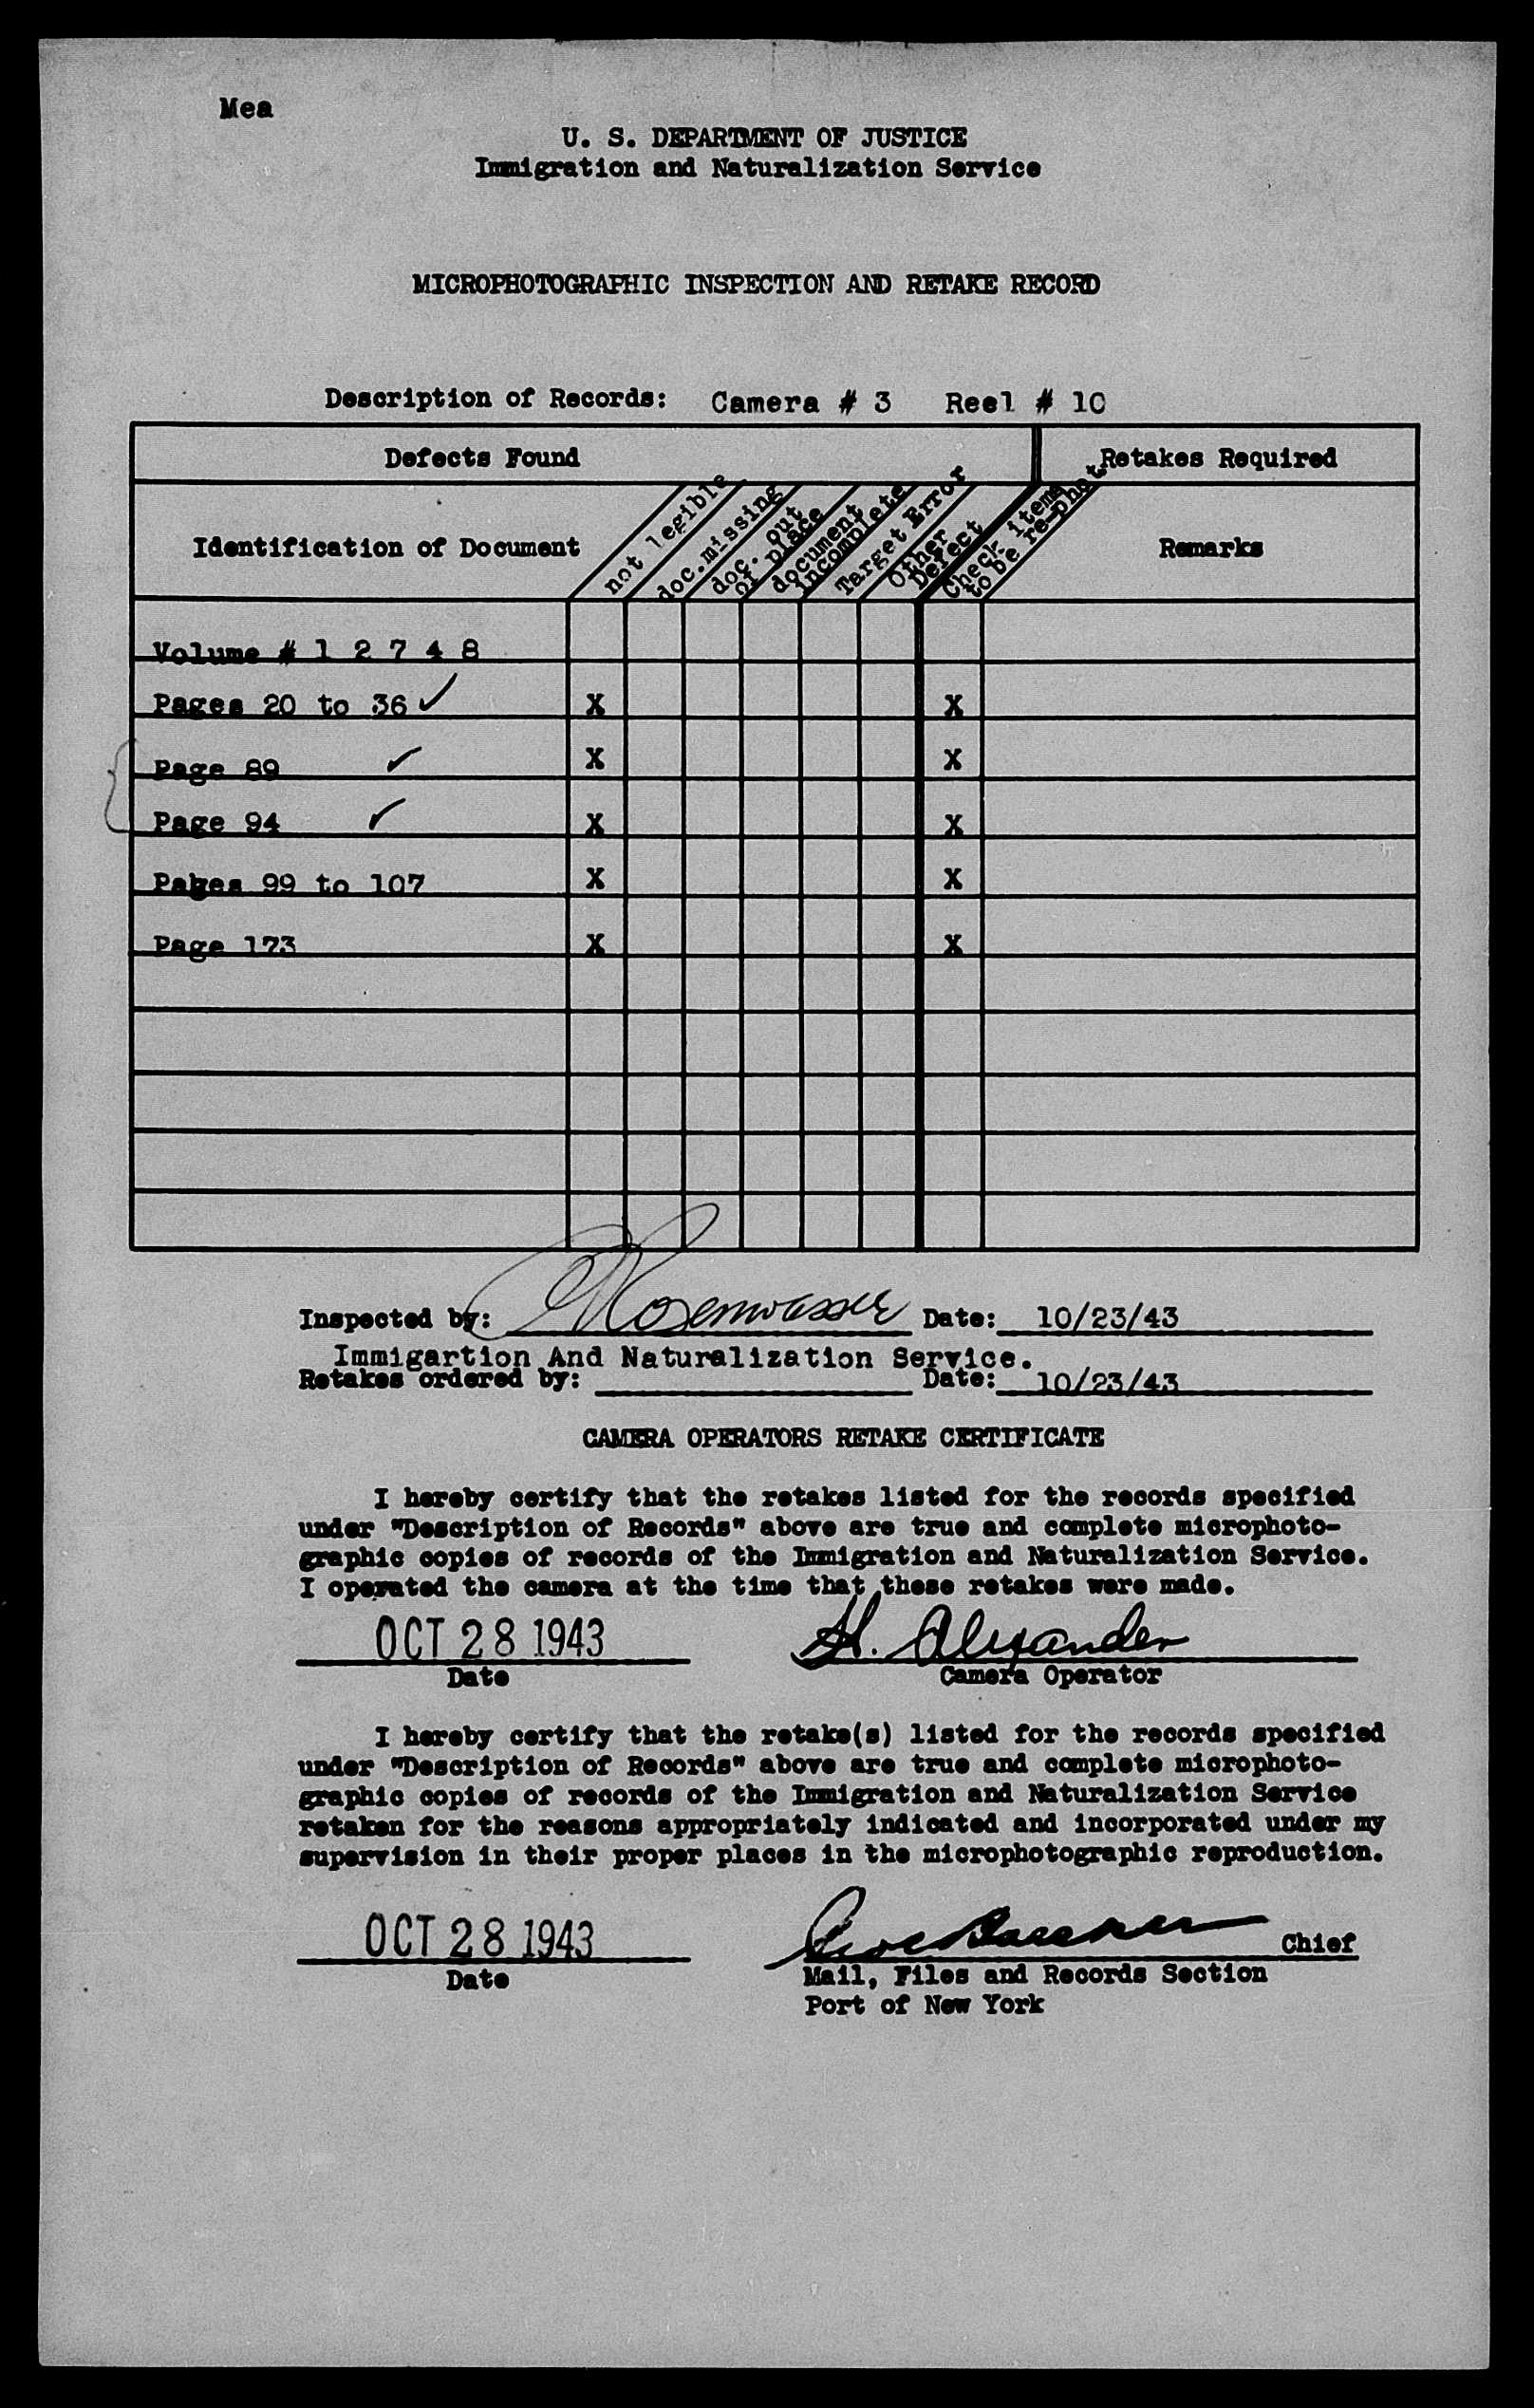 Mea
U. S. DEPARTMENT OF JUSTICE
Immigration and Naturalization Service
MICROPHOTOGRAPHIC INSPECTION AND RETAKE RECORD
Description of Records: Camera # 3 Reel # 10
Defects Found Retakes Required
Identification of Document not legible doc.missing doc. out of place document incomplete Target Error Other Defect Check items to be re-phot Remarks
Volume # 1 2 7 4 8
Pages 20 to 36 ✓ X X
Page 89 ✓ X X
Page 94 ✓ X X
Pabes 99 to 107 X X
Page 173 X X
Inspected by: Rosenwasser Date: 10/23/43
Immigartion And Naturalization Service.
Retakes ordered by: Date: 10/23/43
CAMERA OPERATORS RETAKE CERTIFICATE
I hereby certify that the retakes listed for the records specified
under "Description of Records" above are true and complete microphoto-
graphic copies of records of the Immigration and Naturalization Service.
I operated the camera at the time that these retakes were made.
OCT 28 1943 H. Alexander
Date Camera Operator
I hereby certify that the retake(s) listed for the records specified
under "Description of Records" above are true and complete microphoto-
graphic copies of records of the Immigration and Naturalization Service
retaken for the reasons appropriately indicated and incorporated under my
supervision in their proper places in the microphotographic reproduction.
OCT 28 1943 Chief
Date Mail, Files and Records Section
Port of New York